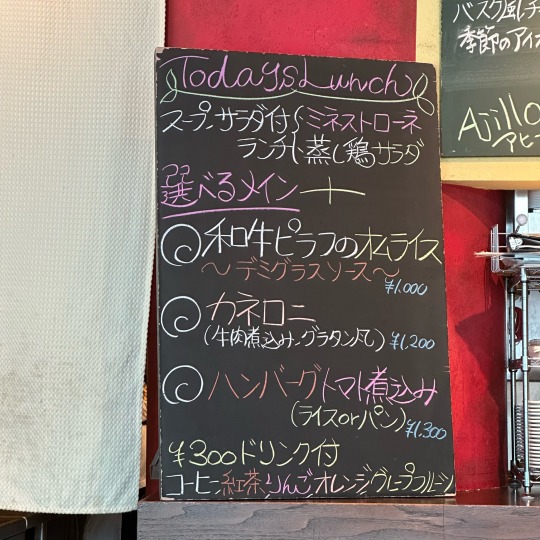 Today's Lunch
スープ、サラダ付 ミネストローネ
ランチ 蒸し鶏サラダ
選べるメイン
和牛ピラフのオムライス
～デミグラスソース～
¥1.000
カネロニ
(牛肉煮込み、グラタン風) ¥1,200
ハンバーグトマト煮込み
(ライスorパン) ¥1,300
¥300ドリンク付
コーヒー 紅茶 りんご オレンジ グレープフルーツ
バスク風チ
季節のアイ
Ajillo
アヒー